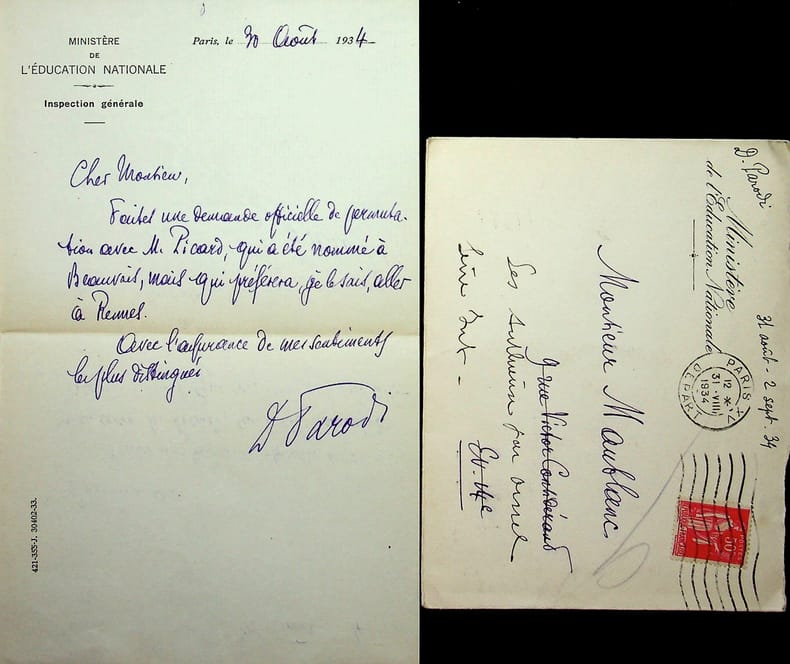 MINISTÈRE
DE
L'ÉDUCATION NATIONALE
Inspection générale
Paris, le 30 Août 1934
Cher Monsieur,
Faites une demande officielle de permuta-
tion avec M. Picard, qui a été nommé à
Beauvais, mais qui préférera, je le sais, aller
à Rennes.
Avec l'assurance de mes sentiments
les plus distingués
D Parodi
421-355-J. 30402-33.
D. Parodi
31 août - 2 sept. 34
Ministère
de l'Éducation Nationale
PARIS
12
31 · VIII
1934
DEPART
50
POSTES
Monsieur Maublanc
9 rue Victor Considérant
Les par
Seine